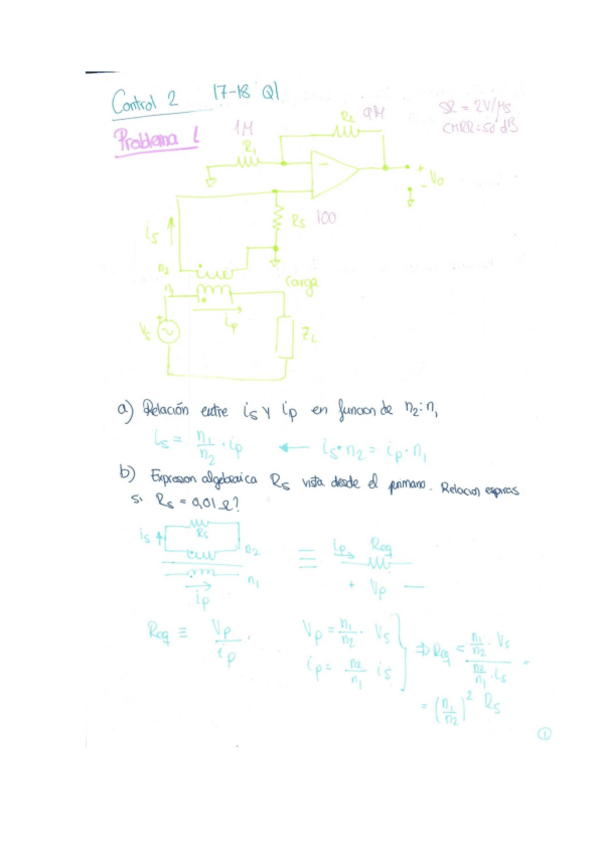 Control 2 17-18 Q1
Problema 1
SR = 2V/μs
CMRR = 50 dB
1M
R1
R2
9M
−
+
Vo
−
is
Rs 100
n2
n1
Carga
ip
Vs
+
ZL
a) Relación entre is y ip en funcion de n2:n1
is = n1/n2 · ip ← is·n2 = ip·n1
b) Expresion algebraica Rs vista desde el primario. Relacion espiras
si Rs = 0,01 Ω?
is
Rs
n2
n1
ip
≡
ip Req
+ Vp −
Req ≡ Vp/ip
Vp = n1/n2 · Vs
ip = n2/n1 is
⇒ Req = (n1/n2 · Vs)/(n2/n1 · is) =
= (n1/n2)² Rs
1